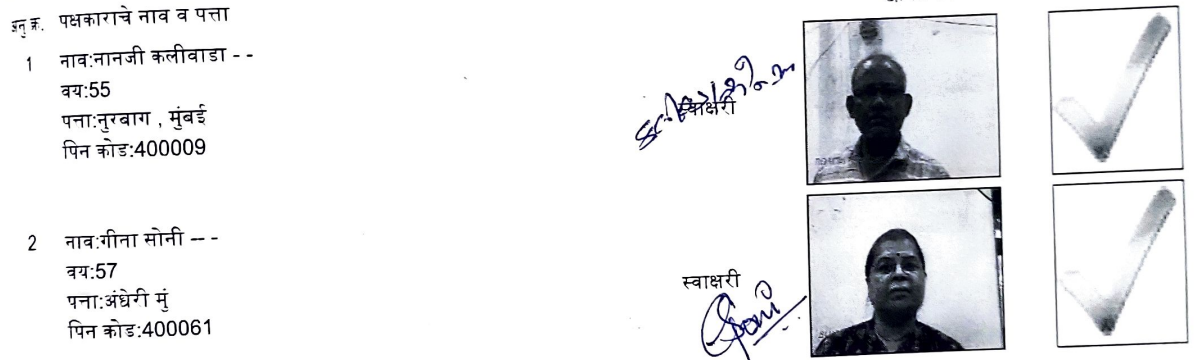 अनु क्र. पक्षकाराचे नाव व पत्ता
1 नाव:नानजी कलीवाडा - -
वय:55
पत्ता:नुरबाग , मुंबई
पिन कोड:400009
स्वाक्षरी
2 नाव:गीना सोनी -- -
वय:57
पत्ता:अंधेरी मुं
पिन कोड:400061
स्वाक्षरी
GSoni